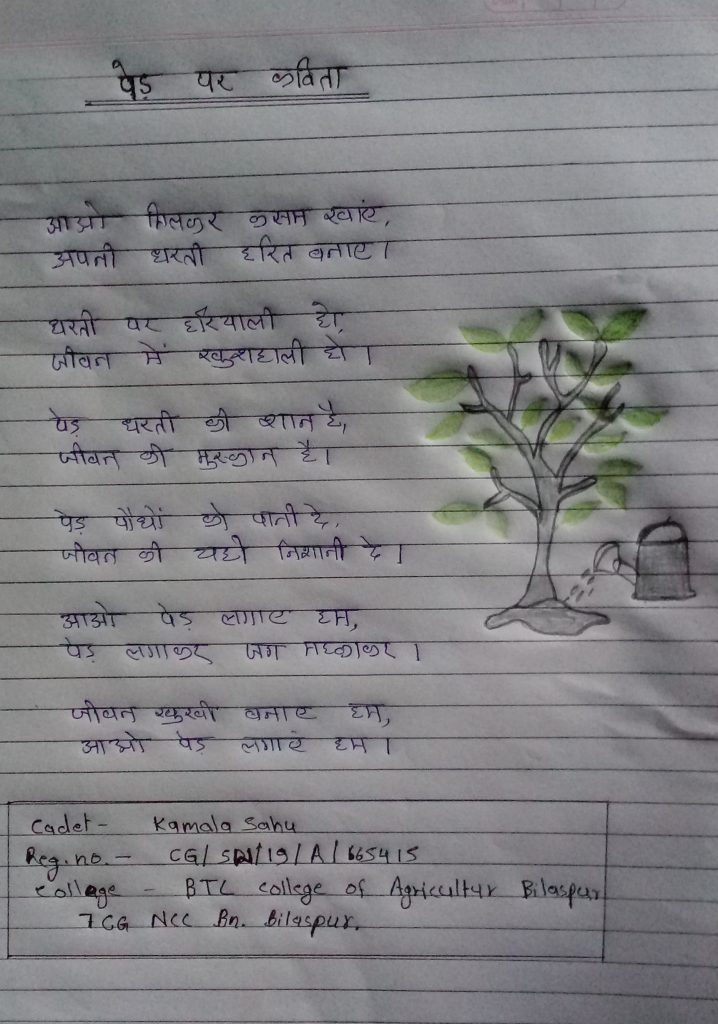 पेड़ पर कविता
आओ मिलकर कसम खाएं,
अपनी धरती हरित बनाए।
धरती पर हरियाली हो,
जीवन में खुशहाली हो।
पेड़ धरती की शान है,
जीवन की मुस्कान है।
पेड़ पौधों को पानी दे,
जीवन की यही निशानी दे।
आओ पेड़ लगाए हम,
पेड़ लगाकर जग महकाकर।
जीवन सुखी बनाए हम,
आओ पेड़ लगाएं हम।
Cadet- Kamala Sahu
Reg. no. - CG/ /19/A/665415
College - BTC College of Agricultur Bilaspur
7 CG NCC Bn. Bilaspur.